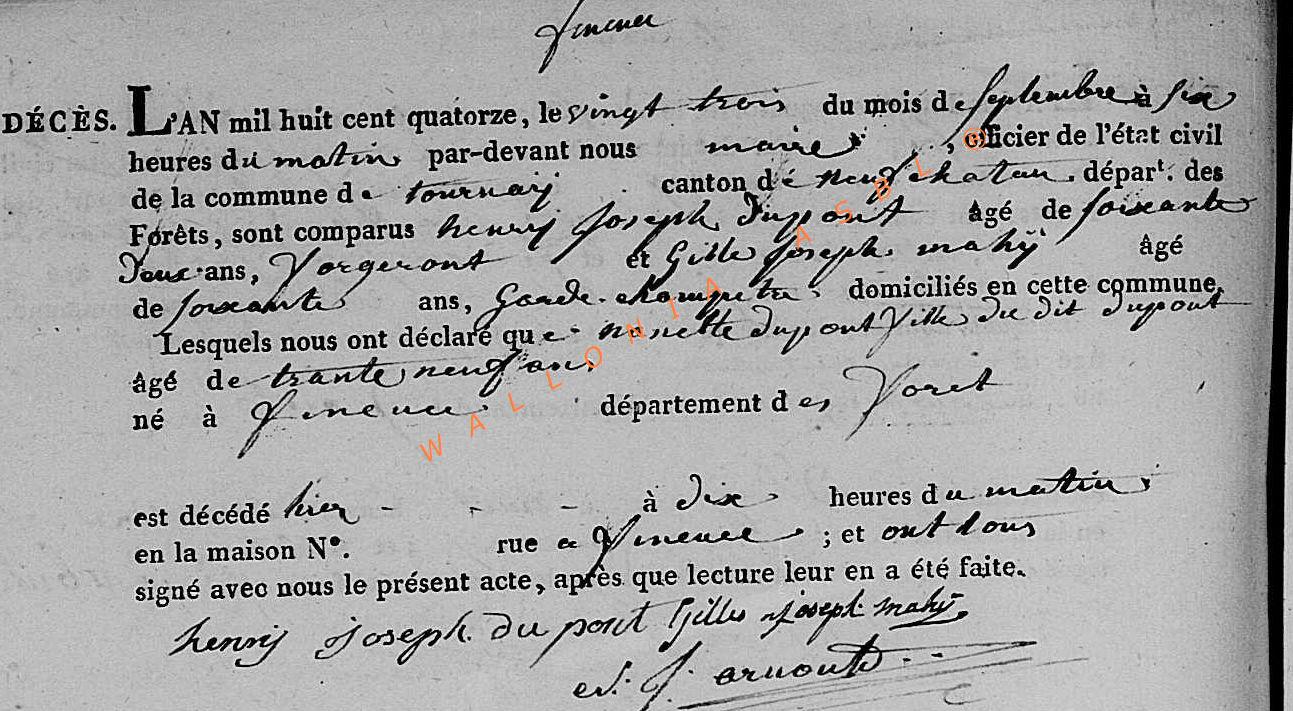 fineuse
DÉCÈS. L'AN mil huit cent quatorze, le vingt trois du mois de Septembre à six
heures du matin par-devant nous maire, officier de l'état civil
de la commune de tournaÿ canton de neufchatau. départ. des
Forêts, sont comparus henrÿ joseph dupont âgé de soixante
deux ans, Vorgeront et Gille joseph mahÿ âgé
de soixante ans, Garde champetre domiciliés en cette commune,
Lesquels nous ont déclaré que nanette dupont fille du dit dupont
âgé de trante neuf ans
né à département des Foret
est décédé hier - - - à dix heures du matin
en la maison N°. rue a ; et ont tous
signé avec nous le présent acte, après que lecture leur en a été faite.
henrÿ joseph du pont Gilles joseph mahÿ
arnould
WALLONIA ASBL ©